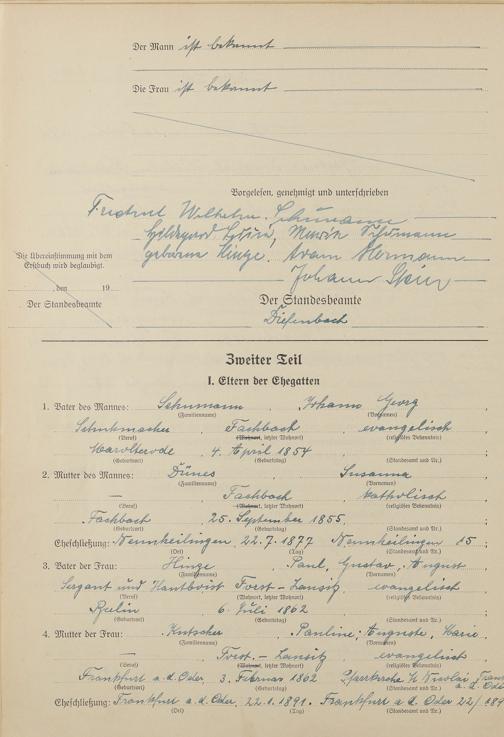 Der Mann ist bekannt
Die Frau ist bekannt
Vorgelesen, genehmigt und unterschrieben
Friedrich Wilhelm Schumann
Hildegard Luise, Maria Schumann
geborene Hinze. Adam Hermann
Johann
Die Übereinstimmung mit dem
Erstbuch wird beglaubigt.
, den 19
Der Standesbeamte
Der Standesbeamte
Diefenbach
Zweiter Teil
I. Eltern der Ehegatten
1. Vater des Mannes: Schumann , Johann Georg
(Familienname) (Vornamen)
Schuhmacher Fachbach evangelisch
(Beruf) (Wohnort, letzter Wohnort) (religiöses Bekenntnis)
4. April 1854
(Geburtsort) (Geburtstag) (Standesamt und Nr.)
2. Mutter des Mannes: Dünes Susanna
(Familienname) (Vornamen)
— Fachbach katholisch
(Wohnort, letzter Wohnort) (religiöses Bekenntnis)
Fachbach 25. September 1855,
(Geburtsort) (Geburtstag) (Standesamt und Nr.)
Eheschließung: Neunheilingen, 22.7.1877 Neunheilingen 15 ;
(Ort) (Tag) (Standesamt und Nr.)
3. Vater der Frau: Hinze , Paul, Gustav, August
(Familienname) (Vornamen)
Sergant und Hautboist Forst-Lausitz evangelisch
(Beruf) (Wohnort, letzter Wohnort) (religiöses Bekenntnis)
Berlin 6. Juli 1862
(Geburtsort) (Geburtstag) (Standesamt und Nr.)
4. Mutter der Frau: Kutscher , Pauline, Auguste, Marie
(Familienname) (Vornamen)
— Forst-Lausitz evangelisch
(Beruf) (Wohnort, letzter Wohnort) (religiöses Bekenntnis)
Frankfurt a.d. Oder, 3. Februar 1862 Pfarrkirche St Nicolai, Frankf. a.d. Oder
(Geburtsort) (Geburtstag) (Standesamt und Nr.)
Eheschließung: Frankfurt a.d. Oder, 22.1.1891. Frankfurt a.d. Oder 22/1891
(Ort) (Tag) (Standesamt und Nr.)